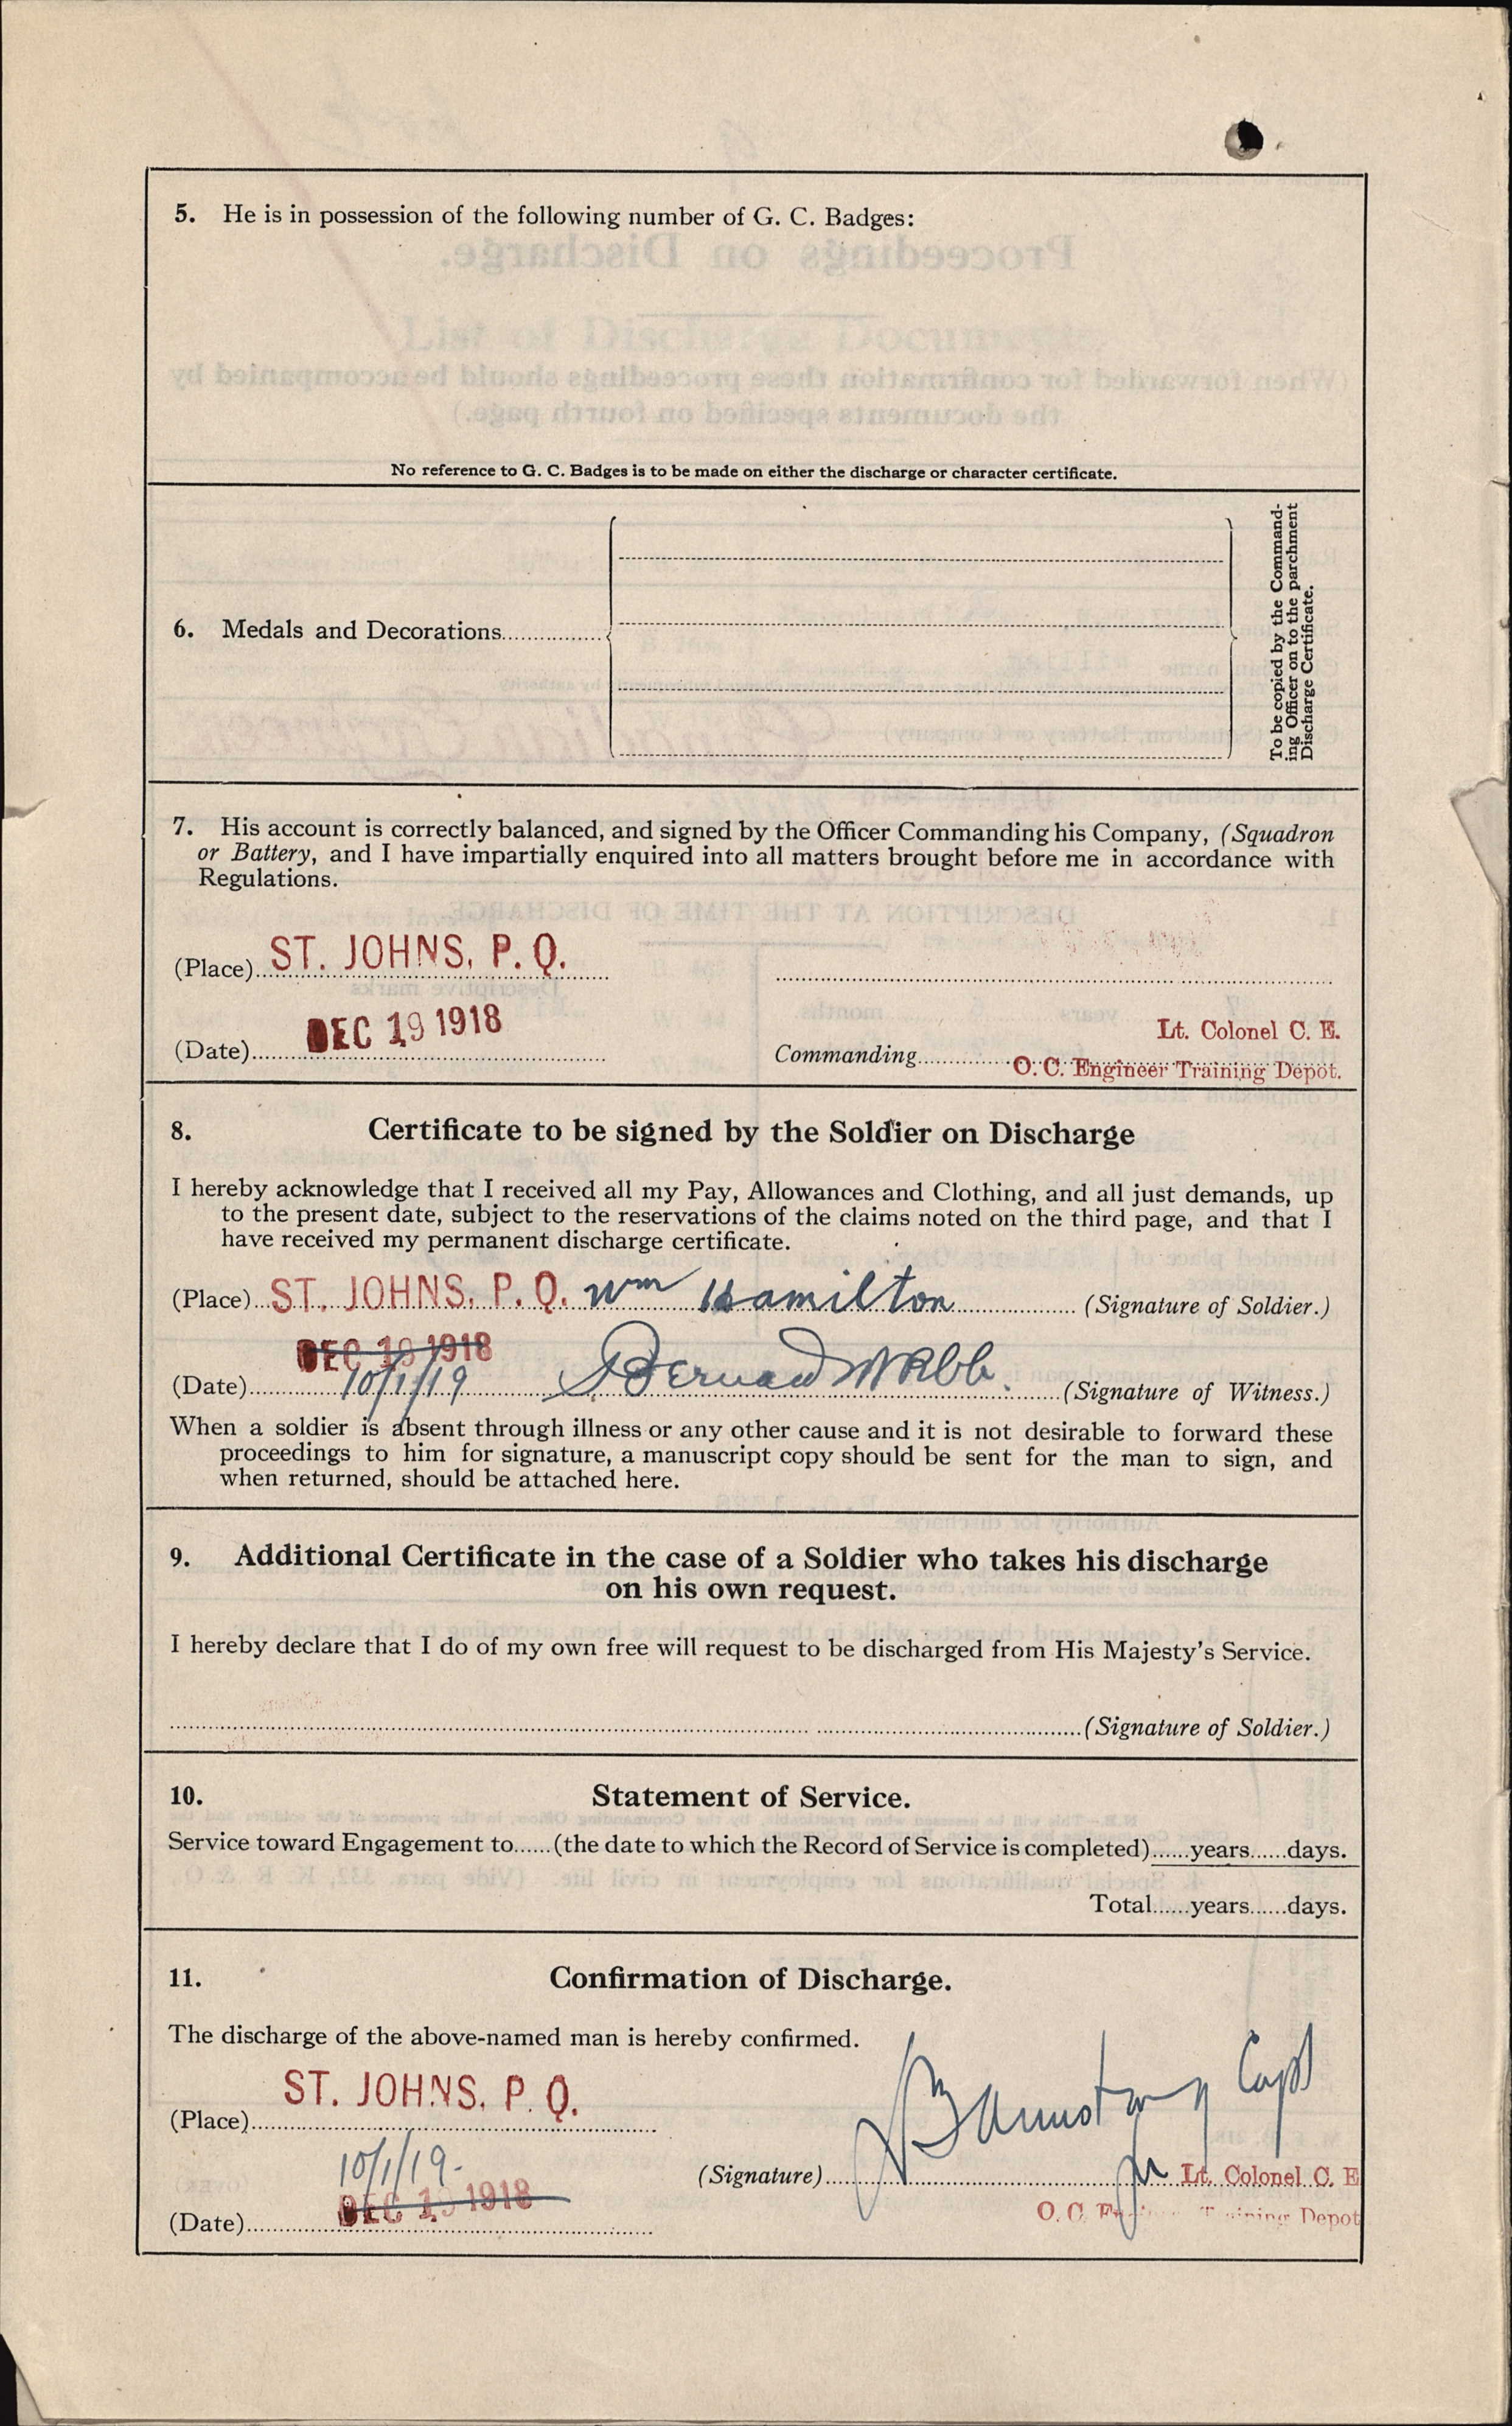 5. He is in possession of the following number of G. C. Badges:
No reference to G. C. Badges is to be made on either the discharge or character certificate.
6. Medals and Decorations
To be copied by the Command-
ing Officer on to the parchment
Discharge Certificate.
7. His account is correctly balanced, and signed by the Officer Commanding his Company, (Squadron
or Battery, and I have impartially enquired into all matters brought before me in accordance with
Regulations.
(Place) ST. JOHNS, P. Q.
(Date) DEC 19 1918
Lt. Colonel C. E.
Commanding O. C. Engineer Training Depot.
8. Certificate to be signed by the Soldier on Discharge
I hereby acknowledge that I received all my Pay, Allowances and Clothing, and all just demands, up
to the present date, subject to the reservations of the claims noted on the third page, and that I
have received my permanent discharge certificate.
(Place) ST. JOHNS, P. Q. Wm Hamilton (Signature of Soldier.)
DEC 19 1918
(Date) 10/1/19 Bernard Webb. (Signature of Witness.)
When a soldier is absent through illness or any other cause and it is not desirable to forward these
proceedings to him for signature, a manuscript copy should be sent for the man to sign, and
when returned, should be attached here.
9. Additional Certificate in the case of a Soldier who takes his discharge
on his own request.
I hereby declare that I do of my own free will request to be discharged from His Majesty's Service.
(Signature of Soldier.)
10. Statement of Service.
Service toward Engagement to......(the date to which the Record of Service is completed)......years......days.
Total......years......days.
11. Confirmation of Discharge.
The discharge of the above-named man is hereby confirmed.
ST. JOHNS, P. Q.
(Place)
Armstrong Capt
10/1/19.
(Signature) for Lt. Colonel C. E
DEC 19 1918
O. C. Training Depot
(Date)